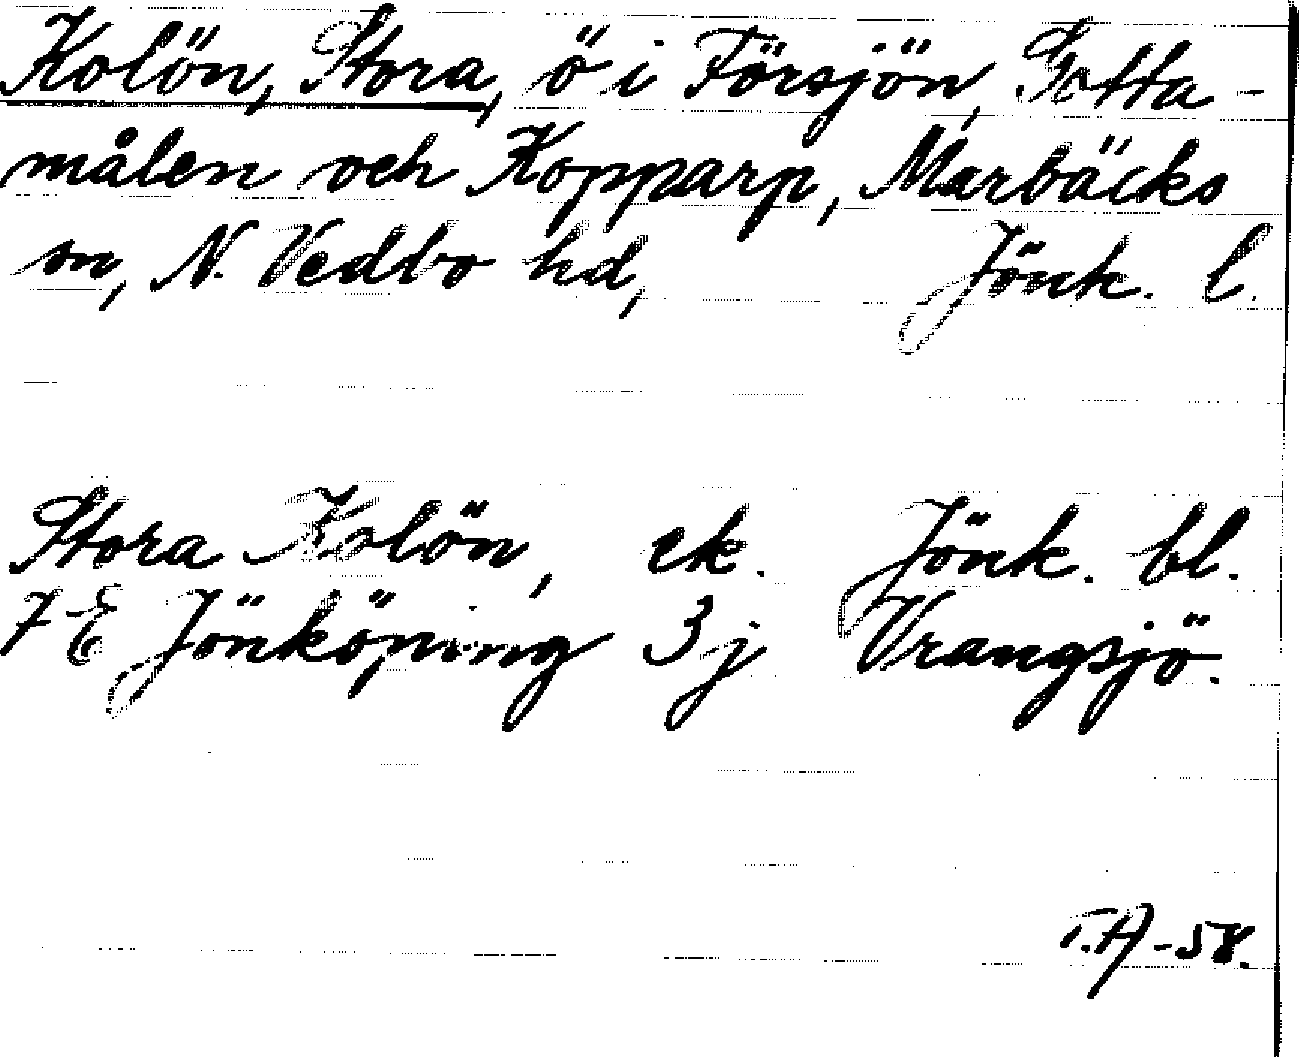 Kolön, Stora, ö i Försjön, Gotta-
målen och Kopparp, Marbäcks
sn, N. Vedbo hd, Jönk. l.
Stora Kolön, ek. Jönk. bl.
7 E Jönköping 3 j Vrangsjö.
T.A -58.